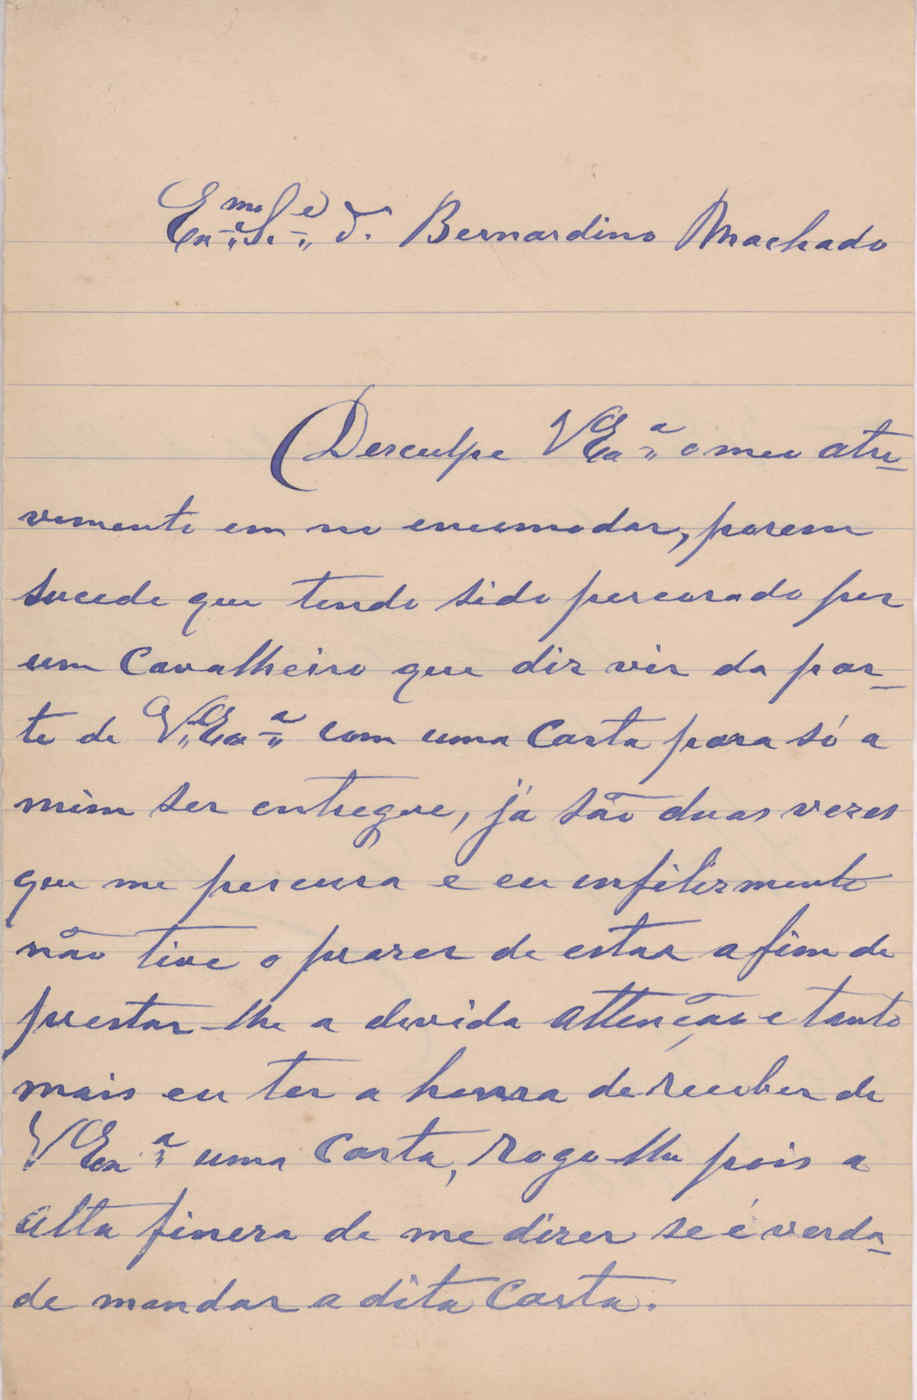 Exmo Sr Dr. Bernardino Machado
Desculpe V Exa o meu atre-
vimento em no encomodar, porem
sucede que tendo sido percurado por
um Cavalheiro que diz vir da par-
te de V. Exa com uma Carta para só a
mim ser entregue, já são duas vezes
que me percura e eu infelizmente
não tive o prazer de estar a fim de
prestar-lhe a devida attenção e tanto
mais eu ter a honra de receber de
V Exa uma Carta, Rogo-lhe pois a
alta fineza de me dizer se é verda-
de mandar a dita Carta.